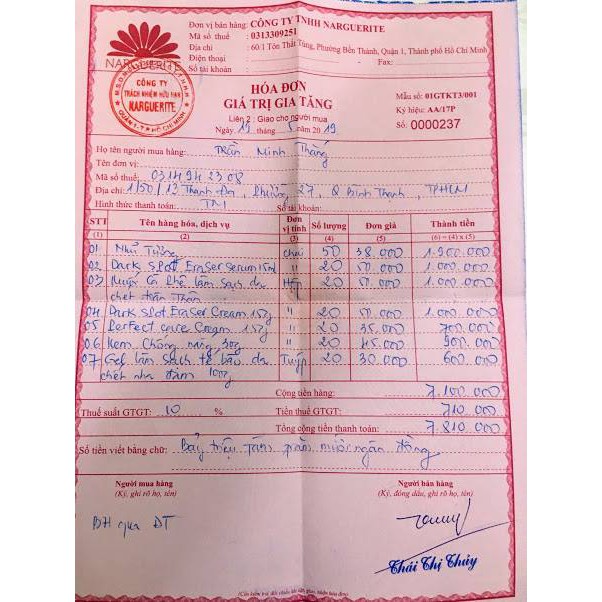 Đơn vị bán hàng: CÔNG TY TNHH NARGUERITE
Mã số thuế : 0313309251
Địa chỉ : 60/1 Tôn Thất Tùng, Phường Bến Thành, Quận 1, Thành phố Hồ Chí Minh
Điện thoại : Fax:
Số tài khoản
NARGUERITE
CÔNG TY
TRÁCH NHIỆM HỮU HẠN
NARGUERITE
QUẬN 1 - T.P HỒ CHÍ MINH
HÓA ĐƠN
GIÁ TRỊ GIA TĂNG
Liên 2: Giao cho người mua
Ngày 19 tháng 5 năm 2019
Mẫu số: 01GTKT3/001
Ký hiệu: AA/17P
Số: 0000237
Họ tên người mua hàng: Trần Minh Thắng
Tên đơn vị:
Mã số thuế: 0314942308
Địa chỉ: 1/50/13 Thanh Đa, Phường 27, Q Bình Thạnh, TPHCM
Hình thức thanh toán: TM Số tài khoản:
STT Tên hàng hóa, dịch vụ Đơn vị tính Số lượng Đơn giá Thành tiền
(1) (2) (3) (4) (5) (6) = (4) x (5)
01 Nhũ Tương chai 50 38.000 1.900.000
02 Dark Spot Eraser Serum 15ml " 20 50.000 1.000.000
03 làm sạch da Hộp 20 50.000 1.000.000
chết toàn Thân
04 Dark Spot Eraser Cream 15g " 20 50.000 1.000.000
05 Perfect care Cream 15g " 20 35.000 700.000
06 Kem Chống nắng 30g " 20 45.000 900.000
07 Gel làm sạch tế bào da Tuýp 20 30.000 600.000
chết nha đam 100g
Cộng tiền hàng: 7.100.000
Thuế suất GTGT: 10 % Tiền thuế GTGT: 710.000
Tổng cộng tiền thanh toán: 7.810.000
Số tiền viết bằng chữ: Bảy triệu tám trăm mười ngàn đồng
Người mua hàng Người bán hàng
(Ký, ghi rõ họ, tên) (Ký, đóng dấu, ghi rõ họ, tên)
BH qua ĐT
Thái Thị Thủy
(Cần kiểm tra, đối chiếu khi lập, giao, nhận hóa đơn)